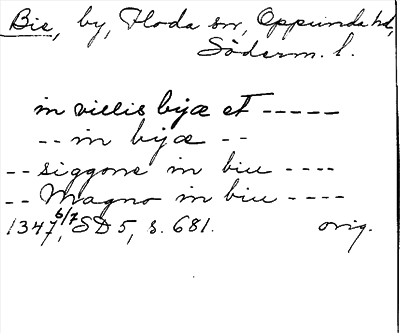 Bie, by, Floda sn, Oppunda hd,
Söderm. l.
in villis bijæ et -----
-- in bijæ --
-- siggone in biu ----
-- Magno in biu ----
1347 6/7, SD 5, s. 681. orig.